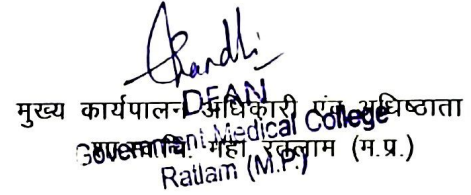 DEAN
मुख्य कार्यपालन अधिकारी एवं अधिष्ठाता
Government Medical College
महा. रतलाम (म.प्र.)
Ratlam (M.P.)